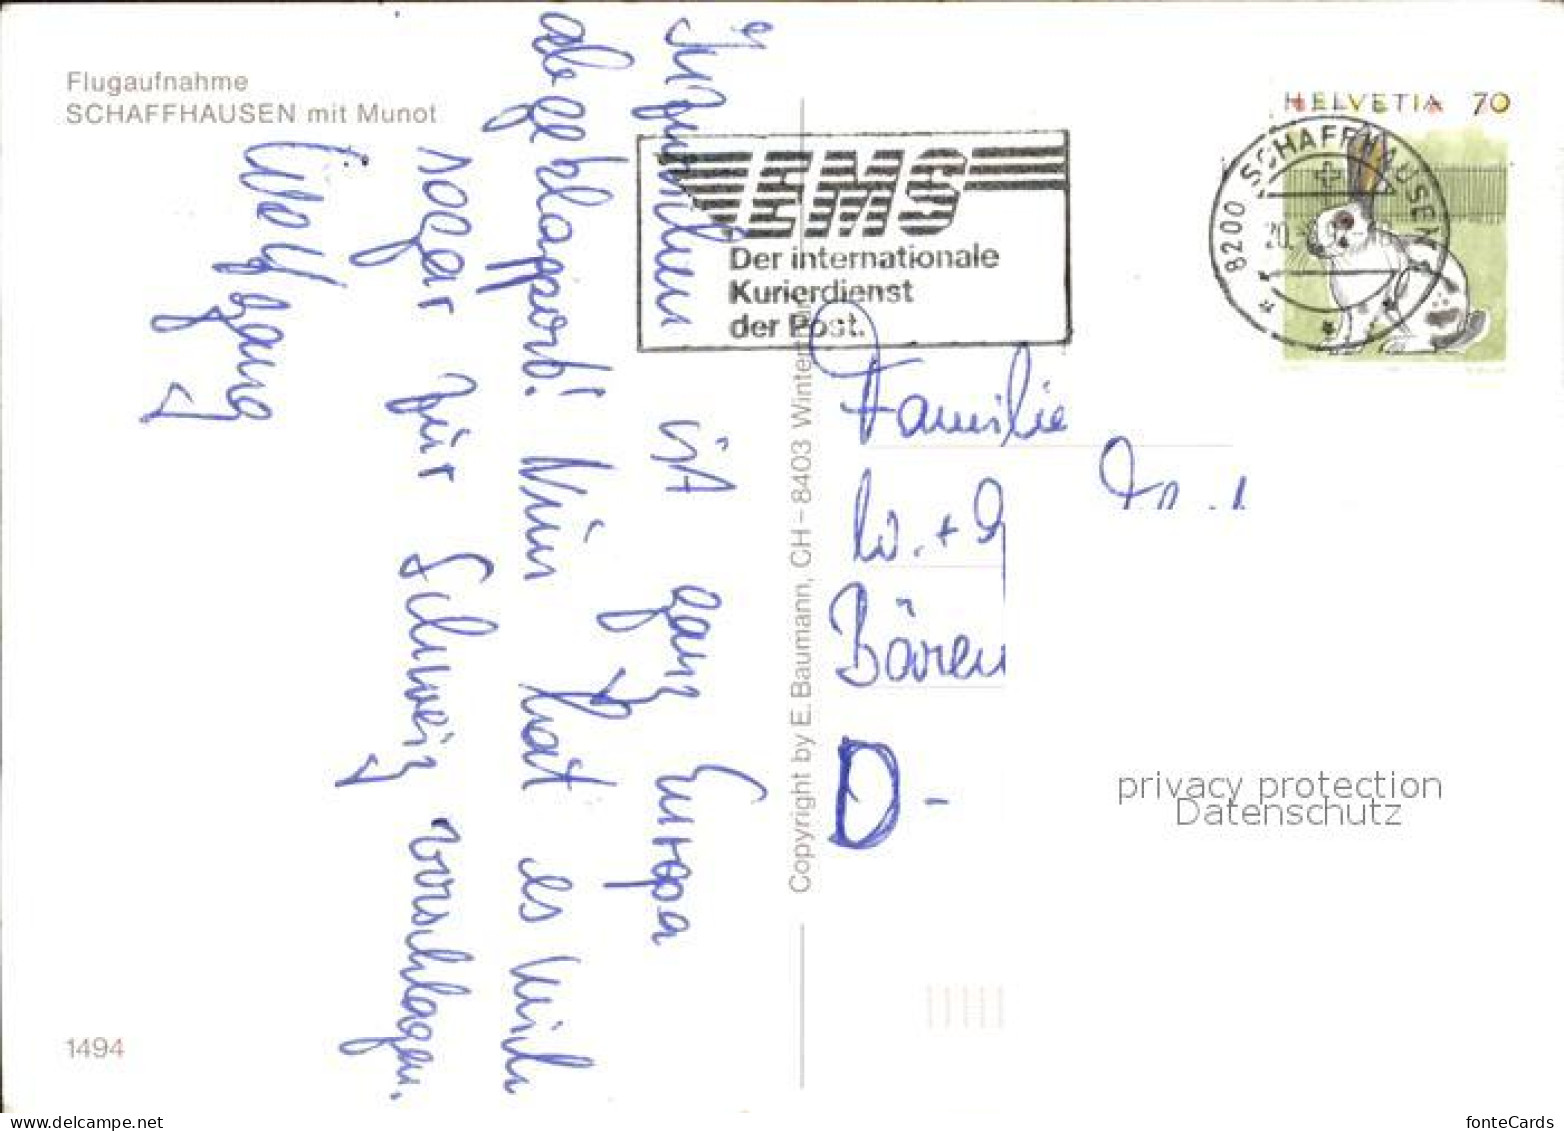 Flugaufnahme
SCHAFFHAUSEN mit Munot
Inzwischen ist ganz Europa
abgeklappert! Nun hat es mich
sogar für Schweiz verschlagen.
Wolfgang
1494
Copyright by E. Baumann, CH – 8403 Winterthur
EMS
Der internationale
Kurierdienst
der Post.
HELVETIA 70
8200 SCHAFFHAUSEN
20.
Familie
W. + G
Bären
D -
privacy protection
Datenschutz
www.delcampe.net
fonteCards